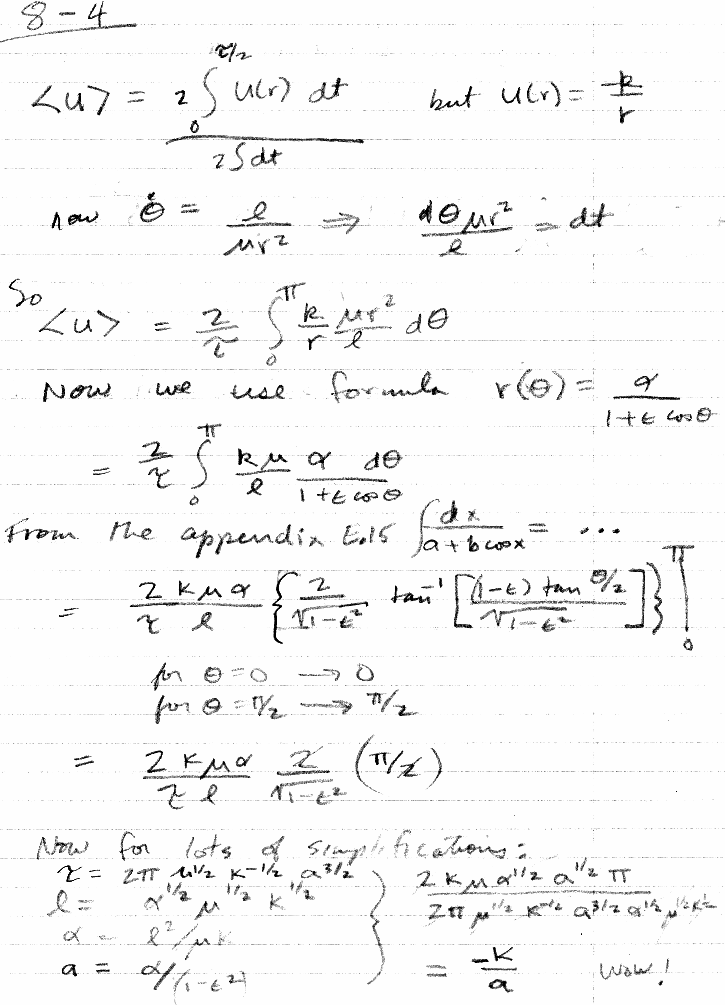 8-4
<u> = 2 ∫₀^{τ/2} U(r) dt / 2∫dt but U(r) = k/r
now θ̇ = ℓ/μr² ⇒ dθ μr²/ℓ = dt
So <u> = 2/τ ∫₀^π k/r μr²/ℓ dθ
Now we use formula r(θ) = α/(1+ε cosθ)
= 2/τ ∫₀^π kμ/ℓ α dθ/(1+ε cosθ)
From the appendix E.15 ∫dx/(a+b cosx) = ...
= 2kμα/τℓ {2/√(1-ε²) tan⁻¹[(1-ε) tan θ/2 / √(1-ε²)]}|₀^π
for θ=0 → 0
for θ=π/2 → π/2
= 2kμα/τℓ 2/√(1-ε²) (π/2)
Now for lots of simplifications:
τ = 2π μ^{1/2} k^{-1/2} a^{3/2}
ℓ = α^{1/2} μ^{1/2} k^{1/2}
α = ℓ²/μk
a = α/(1-ε²)
} 2kμ α^{1/2} a^{1/2} π / 2π μ^{1/2} k^{-1/2} a^{3/2} α^{1/2} μ^{1/2} k^{1/2}
= -k/a wow!